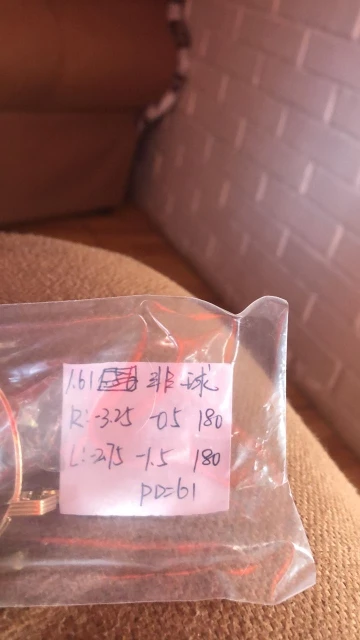 1.61 非球
R:-3.25 -05 180
L:-2.75 -1.5 180
PD=61